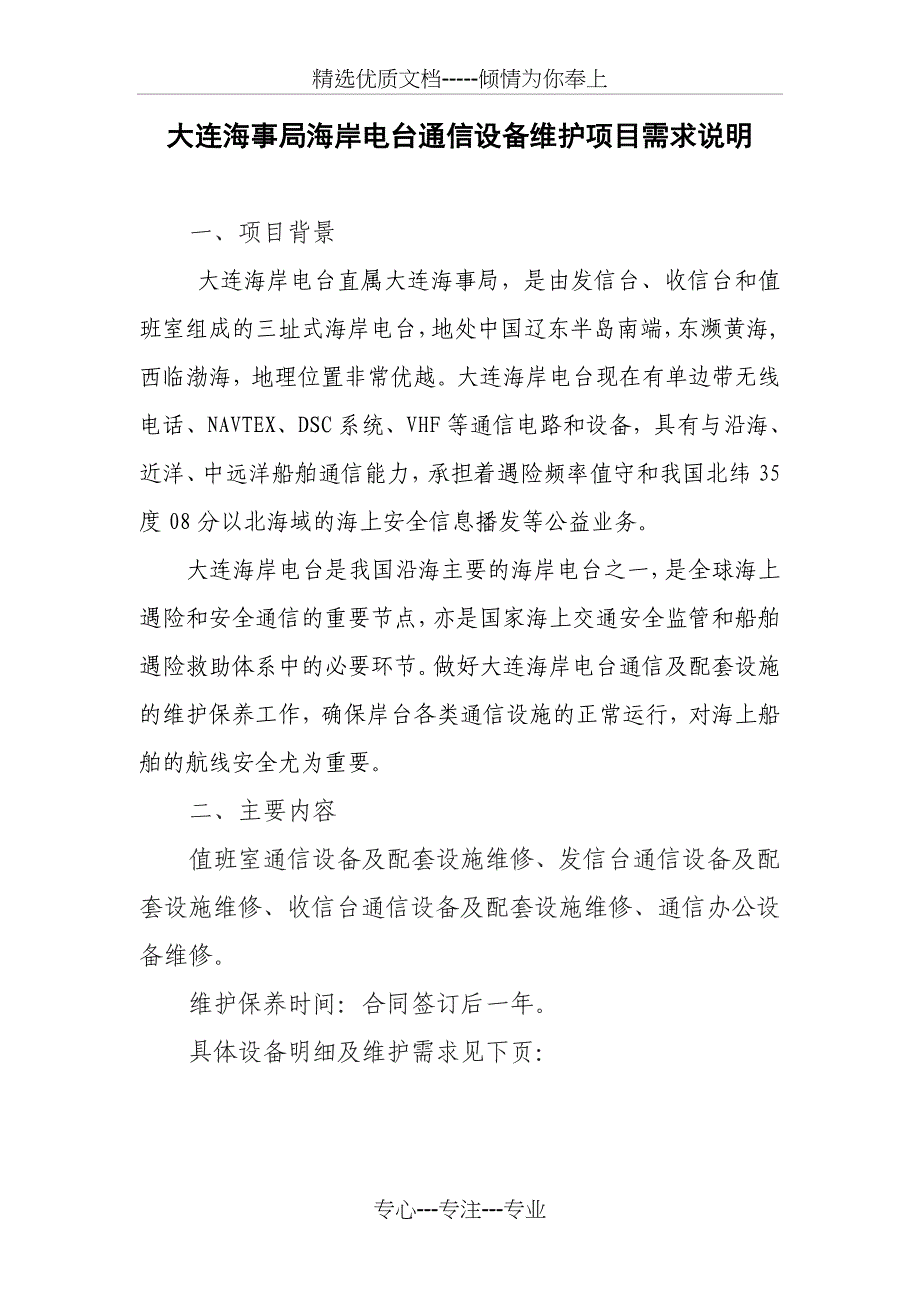 精选优质文档-----倾情为你奉上
大连海事局海岸电台通信设备维护项目需求说明
一、项目背景
大连海岸电台直属大连海事局，是由发信台、收信台和值
班室组成的三址式海岸电台，地处中国辽东半岛南端，东濒黄海，
西临渤海，地理位置非常优越。大连海岸电台现在有单边带无线
电话、NAVTEX、DSC 系统、VHF 等通信电路和设备，具有与沿海、
近洋、中远洋船舶通信能力，承担着遇险频率值守和我国北纬 35
度 08 分以北海域的海上安全信息播发等公益业务。
大连海岸电台是我国沿海主要的海岸电台之一，是全球海上
遇险和安全通信的重要节点，亦是国家海上交通安全监管和船舶
遇险救助体系中的必要环节。做好大连海岸电台通信及配套设施
的维护保养工作，确保岸台各类通信设施的正常运行，对海上船
舶的航线安全尤为重要。
二、主要内容
值班室通信设备及配套设施维修、发信台通信设备及配
套设施维修、收信台通信设备及配套设施维修、通信办公设
备维修。
维护保养时间：合同签订后一年。
具体设备明细及维护需求见下页：
专心---专注---专业